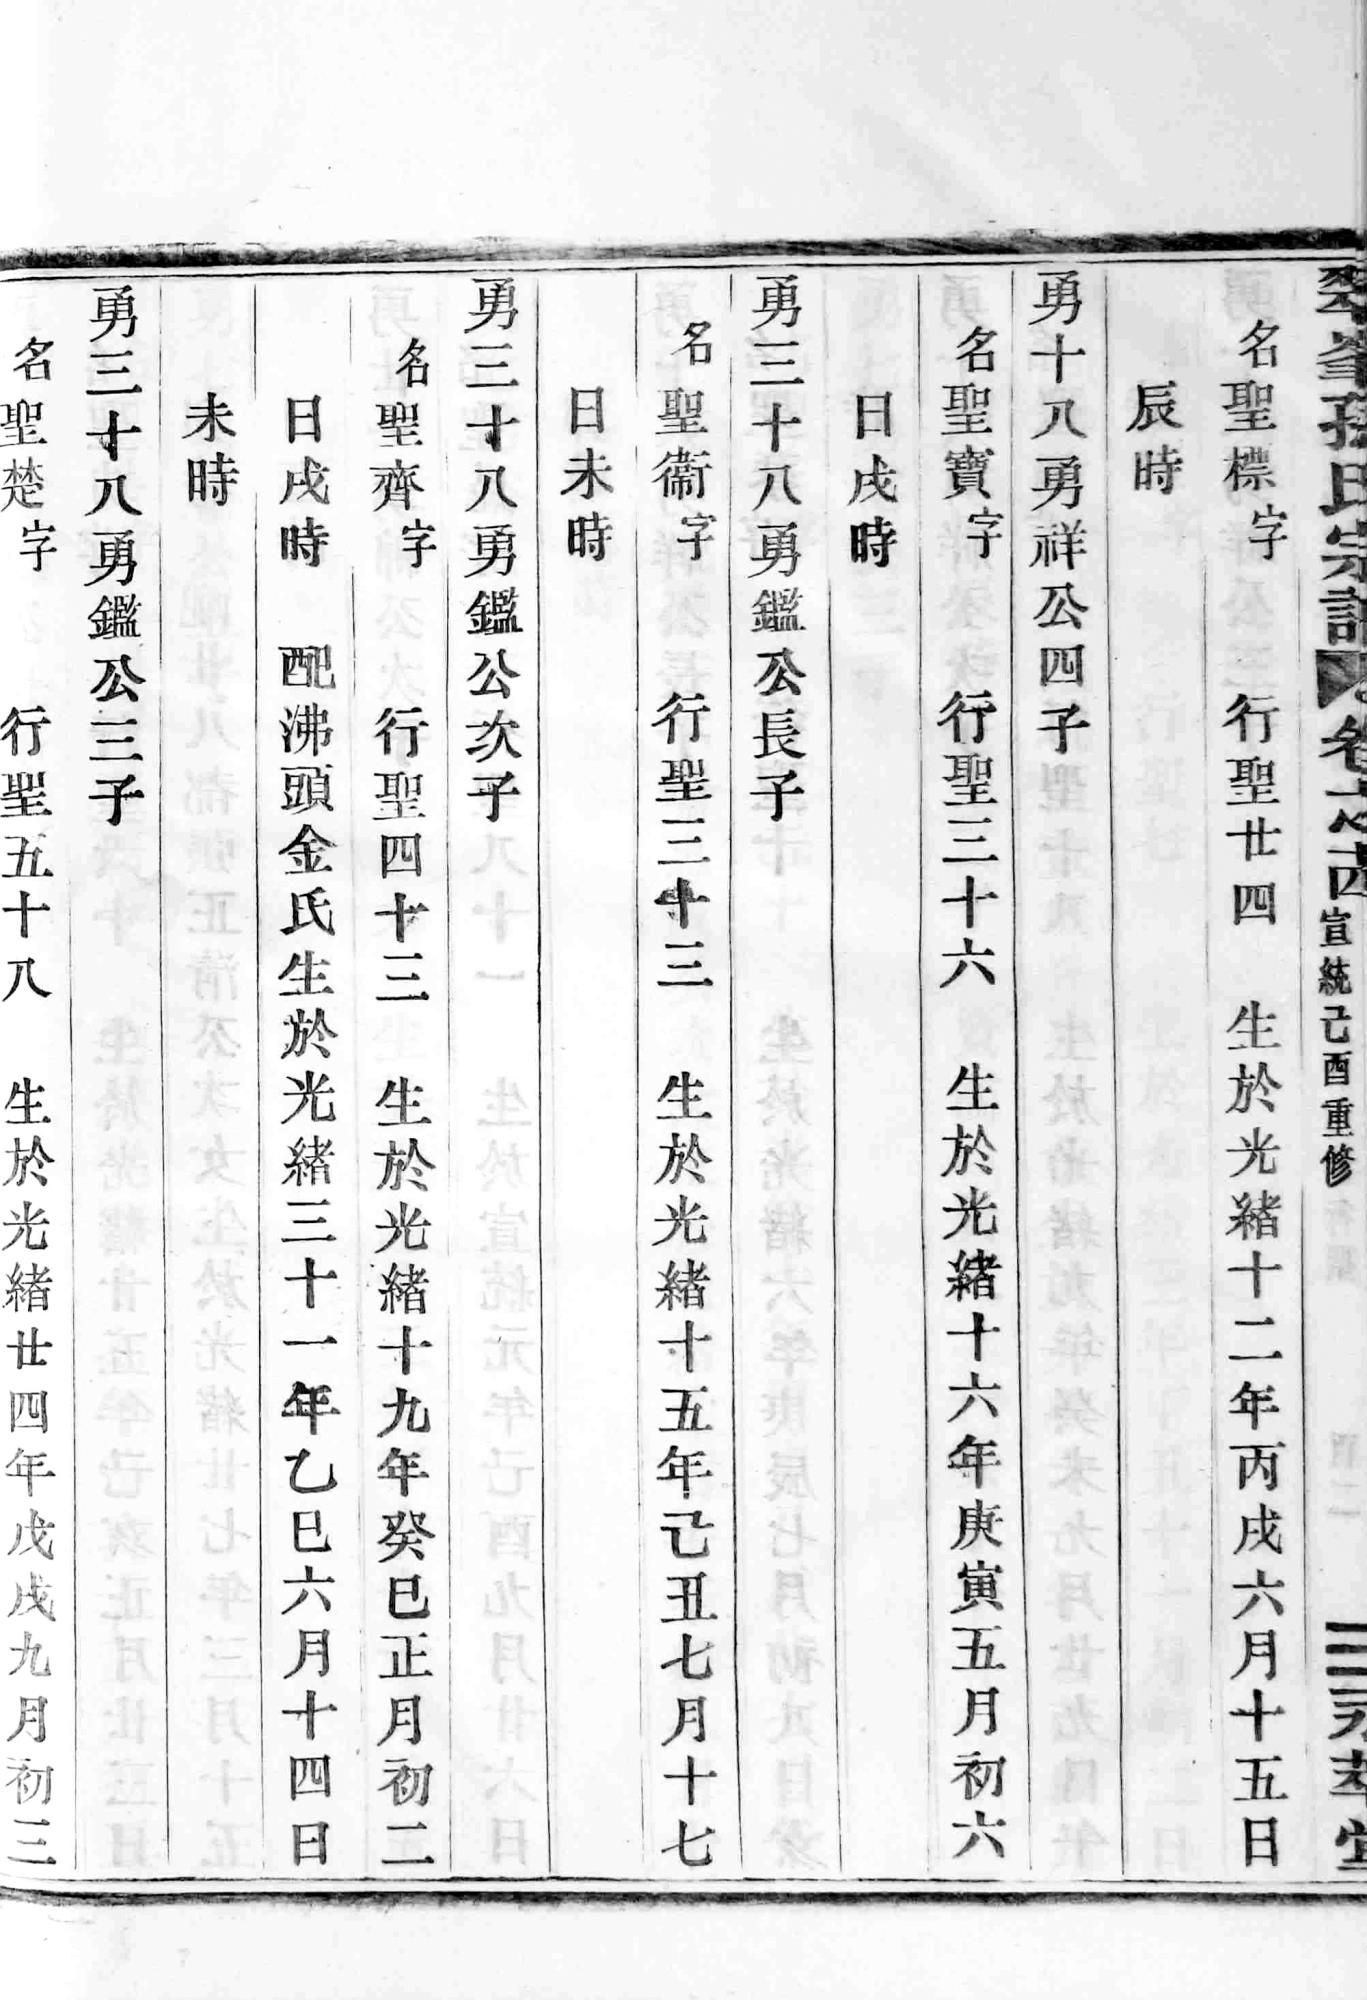 峯孫氏宗譜 卷之 宣統己酉重修 三 萃堂
名聖標字 行聖廿四 生於光緒十二年丙戌六月十五日
辰時
勇十八勇祥公四子
名聖寶字 行聖三十六 生於光緒十六年庚寅五月初六
日戌時
勇三十八勇鑑公長子
名聖衞字 行聖三十三 生於光緒十五年己丑七月十七
日未時
勇三十八勇鑑公次子
名聖齊字 行聖四十三 生於光緒十九年癸巳正月初二
日戌時 配沸頭金氏生於光緒三十一年乙巳六月十四日
未時
勇三十八勇鑑公三子
名聖楚字 行聖五十八 生於光緒廿四年戊戌九月初三